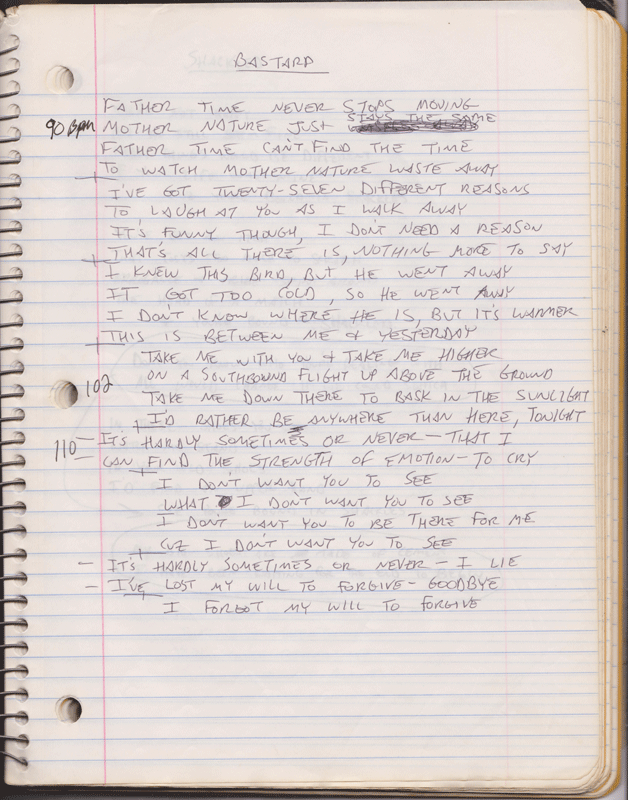 BASTARD
FATHER TIME NEVER STOPS MOVING
STAYS THE SAME
90 Bpm MOTHER NATURE JUST
FATHER TIME CAN'T FIND THE TIME
TO WATCH MOTHER NATURE WASTE AWAY
I'VE GOT TWENTY-SEVEN DIFFERENT REASONS
TO LAUGH AT YOU AS I WALK AWAY
IT'S FUNNY THOUGH, I DON'T NEED A REASON
THAT'S ALL THERE IS, NOTHING MORE TO SAY
I KNEW THIS BIRD, BUT HE WENT AWAY
IT GOT TOO COLD, SO HE WENT AWAY
I DON'T KNOW WHERE HE IS, BUT IT'S WARMER
THIS IS BETWEEN ME & YESTERDAY
TAKE ME WITH YOU & TAKE ME HIGHER
102 ON A SOUTHBOUND FLIGHT UP ABOVE THE GROUND
TAKE ME DOWN THERE TO BASK IN THE SUNLIGHT
I'D RATHER BE ANYWHERE THAN HERE, TONIGHT
110 - IT'S HARDLY SOMETIMES OR NEVER - THAT I
- CAN FIND THE STRENGTH OF EMOTION - TO CRY
I DON'T WANT YOU TO SEE
WHAT I DON'T WANT YOU TO SEE
I DON'T WANT YOU TO BE THERE FOR ME
CUZ I DON'T WANT YOU TO SEE
- IT'S HARDLY SOMETIMES OR NEVER - I LIE
- I'VE LOST MY WILL TO FORGIVE - GOODBYE
I FORGOT MY WILL TO FORGIVE